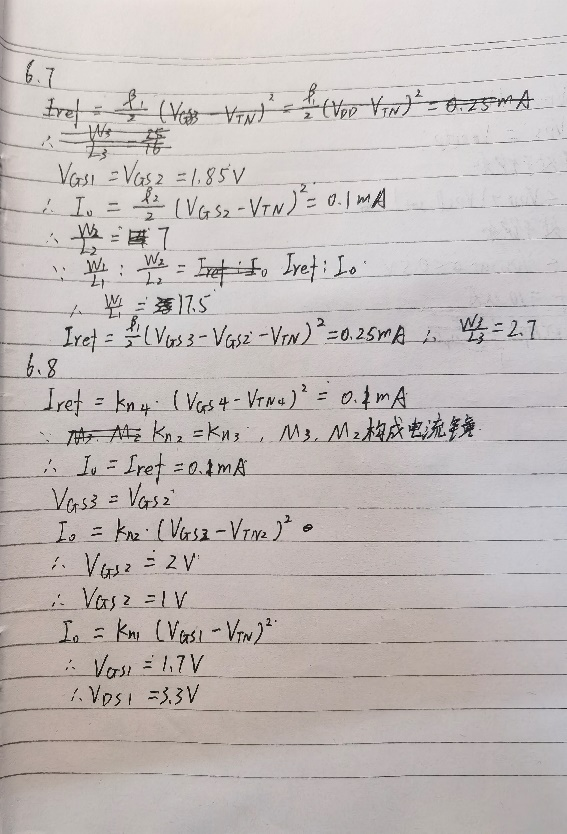 6.7
Iref = β₁/2 (VGS3 − VTN)² = β₁/2 (VDD − VTN)² = 0.25mA
∴ W3/L3 = 25/16
VGS1 = VGS2 = 1.85V
∴ Io = β2/2 (VGS2 − VTN)² = 0.1mA
∴ W2/L2 = 7
∵ W1/L1 : W2/L2 = Iref : Io Iref : Io
∴ W1/L1 = 17.5
Iref = β1/2 (VGS3 − VGS2 − VTN)² = 0.25mA ∴ W3/L3 = 2.7
6.8
Iref = kn4 · (VGS4 − VTN4)² = 0.1mA
∵ M3, M2 kn2 = kn3 , M3, M2构成电流镜
∴ Io = Iref = 0.1mA
VGS3 = VGS2
Io = kn2 · (VGS2 − VTN2)²
∴ VGS2 = 2V
∴ VGS2 = 1V
Io = kn1 (VGS1 − VTN)²
∴ VGS1 = 1.7V
∴ VDS1 = 3.3V